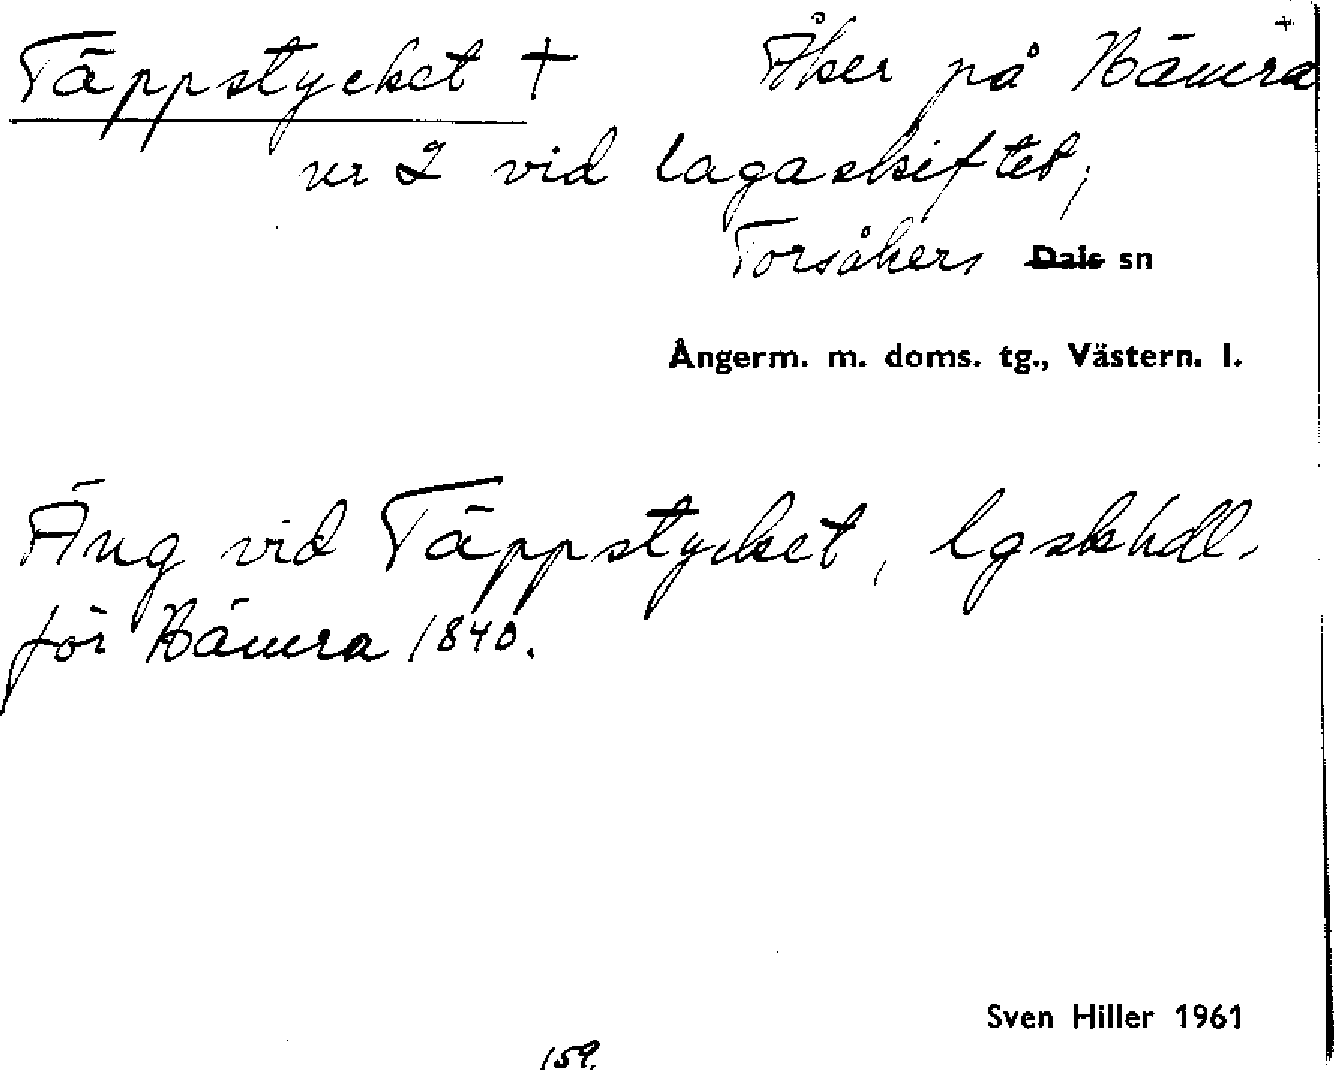 Täppstycket †	Åker på Bämra +
nr 2 vid lagaskiftet,
Torsåkers Dals sn
Ångerm. m. doms. tg., Västern. l.
Äng vid Täppstycket, lgskhdl.
för Bämra 1840.
Sven Hiller 1961
159.